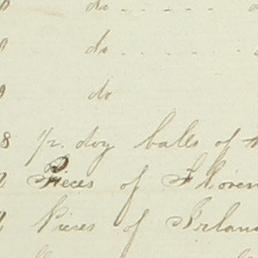 do
do
do
8 pr. doz bales of
Pieces of Floren
Pieces of Irelan